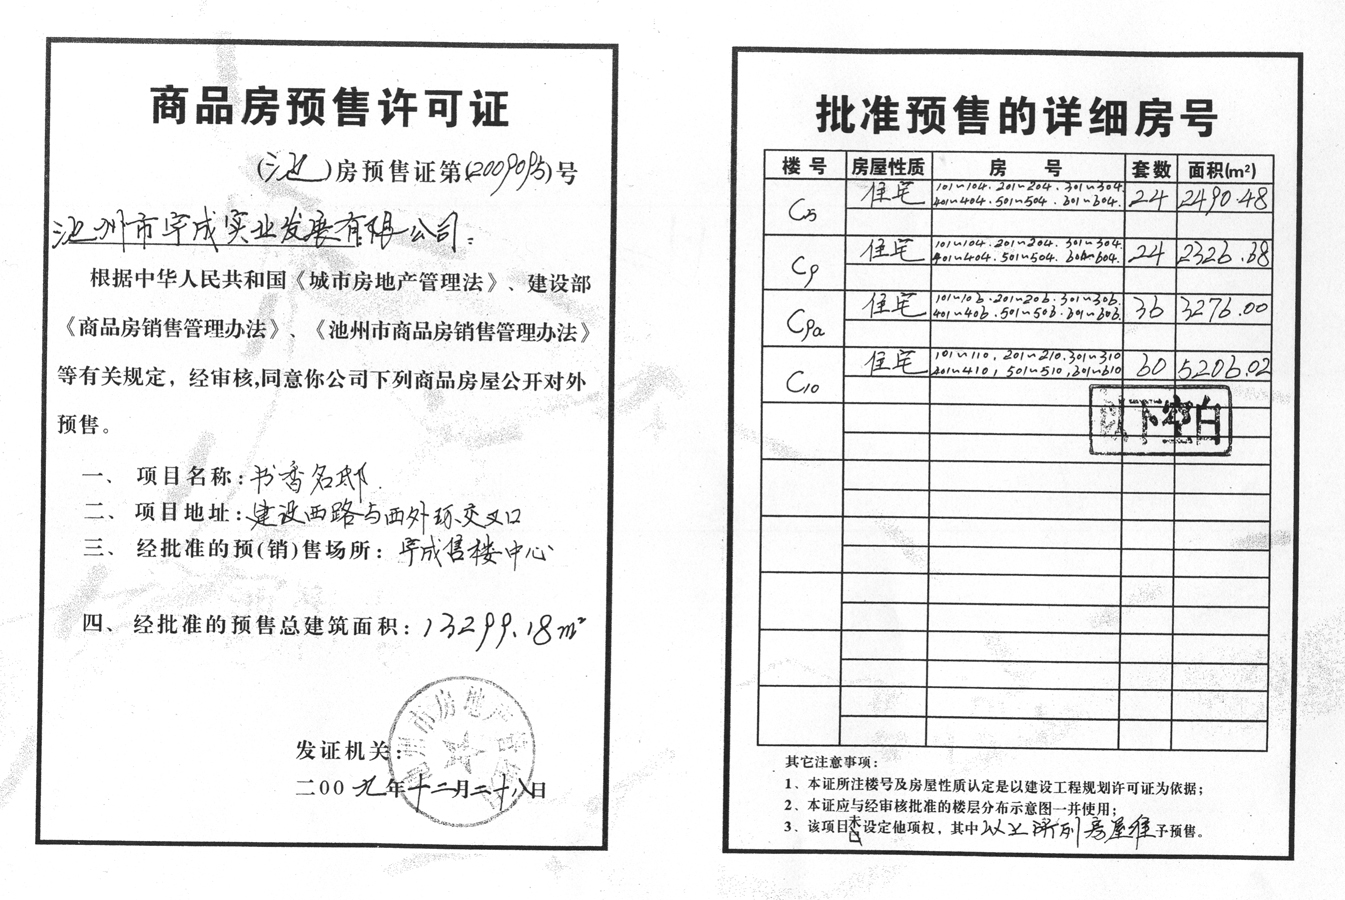 商品房预售许可证
(池)房预售证第(2009095)号
池州市宇成实业发展有限公司:
根据中华人民共和国《城市房地产管理法》、建设部
《商品房销售管理办法》、《池州市商品房销售管理办法》
等有关规定，经审核,同意你公司下列商品房屋公开对外
预售。
一、 项目名称:书香名邸.
二、 项目地址:建设西路与西外环交叉口
三、 经批准的预(销)售场所: 宇成售楼中心
四、 经批准的预售总建筑面积: 13299.18m²
池州市房地产管理局
发证机关:
二00九年十二月二十八日
批准预售的详细房号
楼 号 房屋性质 房 号 套数 面积(m²)
C5 住宅 101~104.201~204.301~304. 24 2490.48
401~404.501~504.601~604.
C9 住宅 101~104.201~204.301~304. 24 2326.68
401~404.501~504.601~604.
C9a 住宅 101~106.201~206.301~306. 36 3276.00
401~406.501~506.601~606.
C10 住宅 101~110,201~210.301~310 60 5206.02
401~410,501~510,601~610
以下空白
其它注意事项:
1、本证所注楼号及房屋性质认定是以建设工程规划许可证为依据;
2、本证应与经审核批准的楼层分布示意图一并使用;
3、该项目未设定他项权，其中以上所列房屋准予预售。